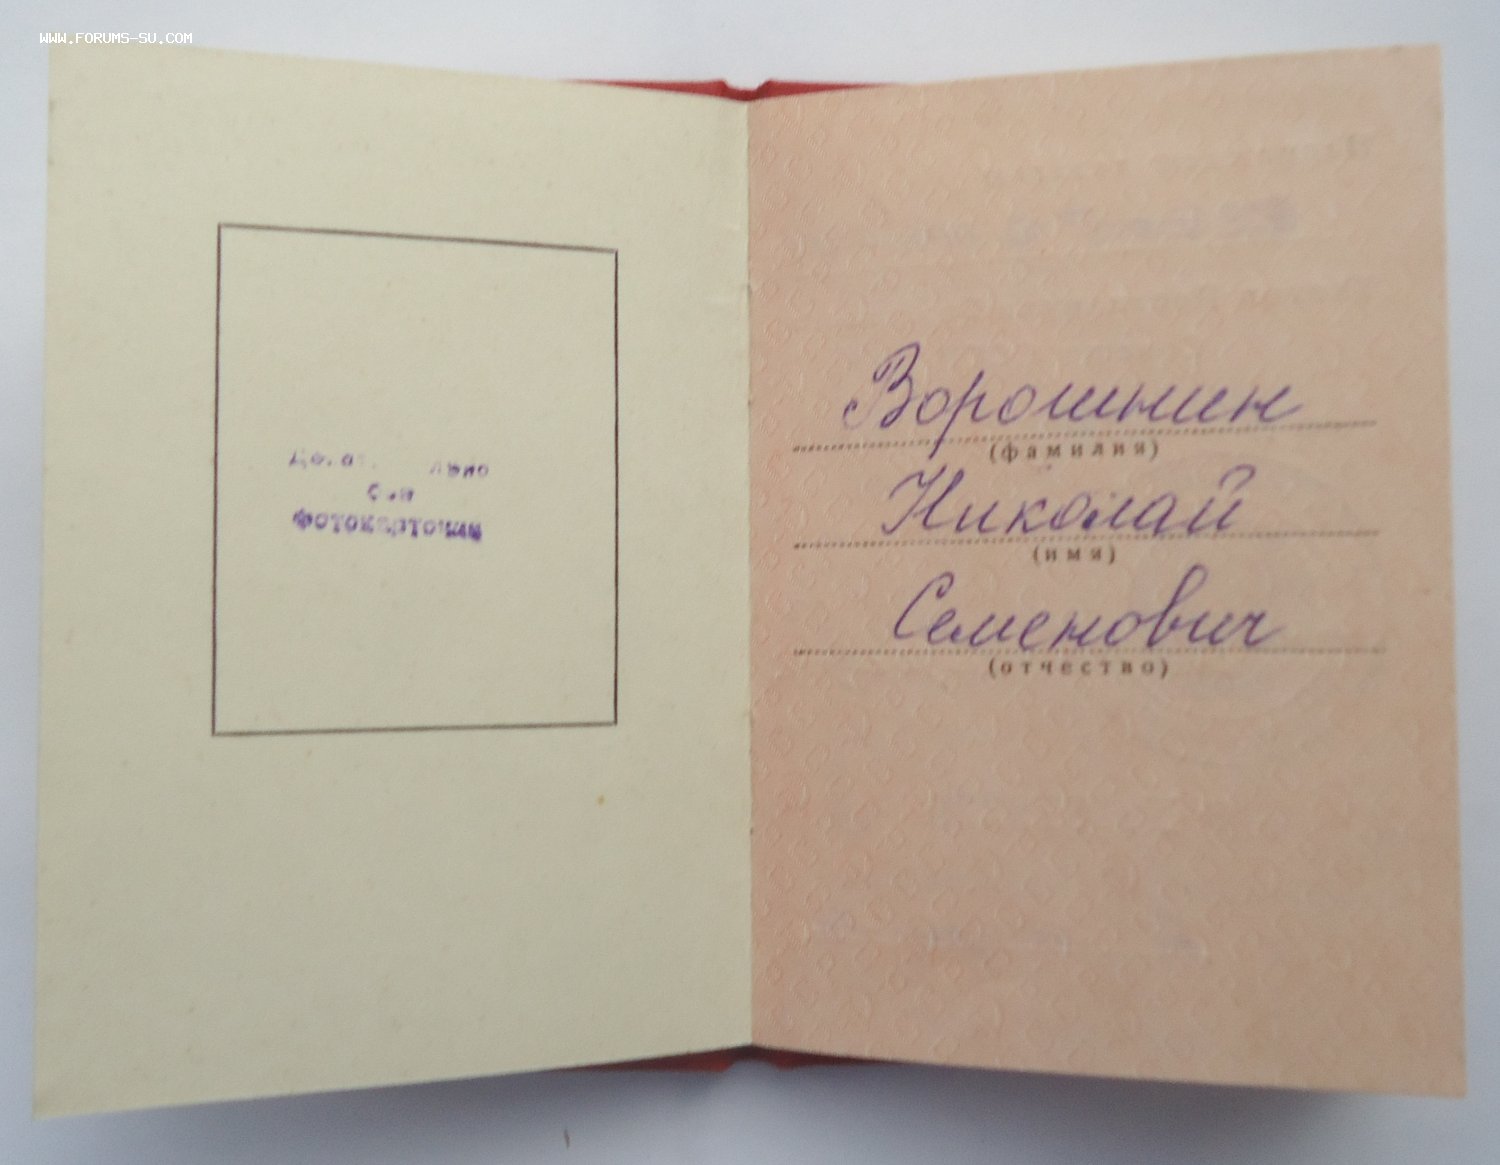 WWW.FORUMS-SU.COM
фотокарточки
Ворошнин
(фамилия)
Николай
(имя)
Семенович
(отчество)